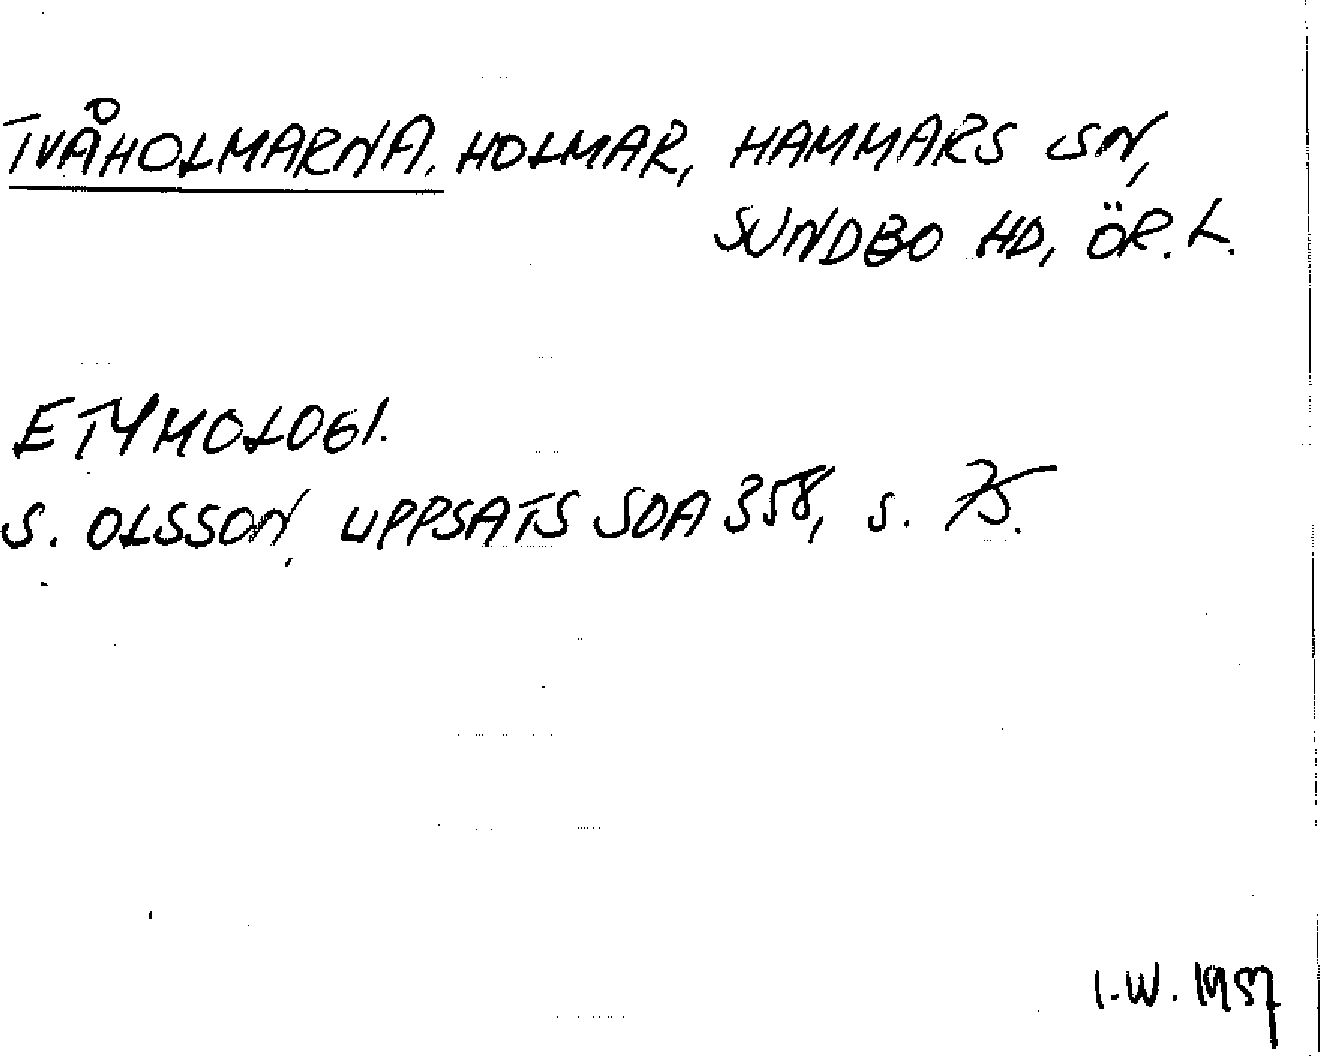 TVÅHOLMARNA. HOLMAR, HAMMARS SN,
SUNDBO HD, ÖR. L.
ETYMOLOGI.
S. OLSSON, UPPSATS SOA 358, s. 75.
I.W. 1957